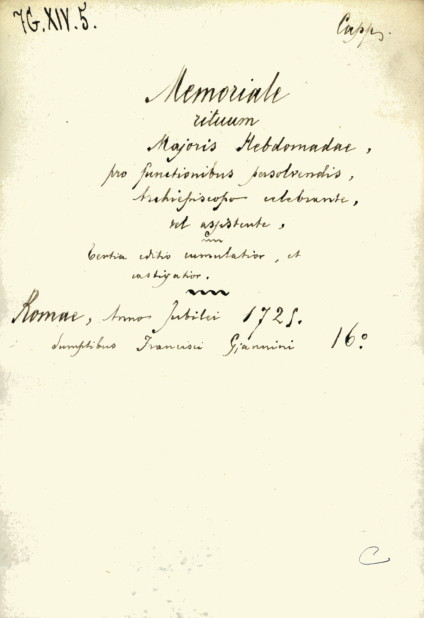 7G.XIV.5.
Capp.
Memoriale
rituum
Majoris Hebdomadae,
pro functionibus persolvendis,
Archiepiscopo celebrante,
vel assistente,
tertia editio cumulatior, et
castigatior.
Romae, Anno Jubilei 1725.
sumptibus Francisci Giannini 16°
C